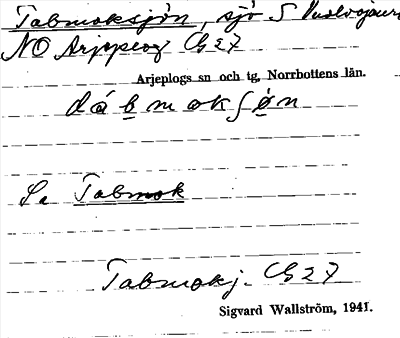 Tabmoksjön, sjö S
NO Arjeplog Cg 27
Arjeplogs sn och tg, Norrbottens län.
dåb̲mokʃø̲n
Se Tabmok
Tabmokj. Cg 27
Sigvard Wallström, 1941.